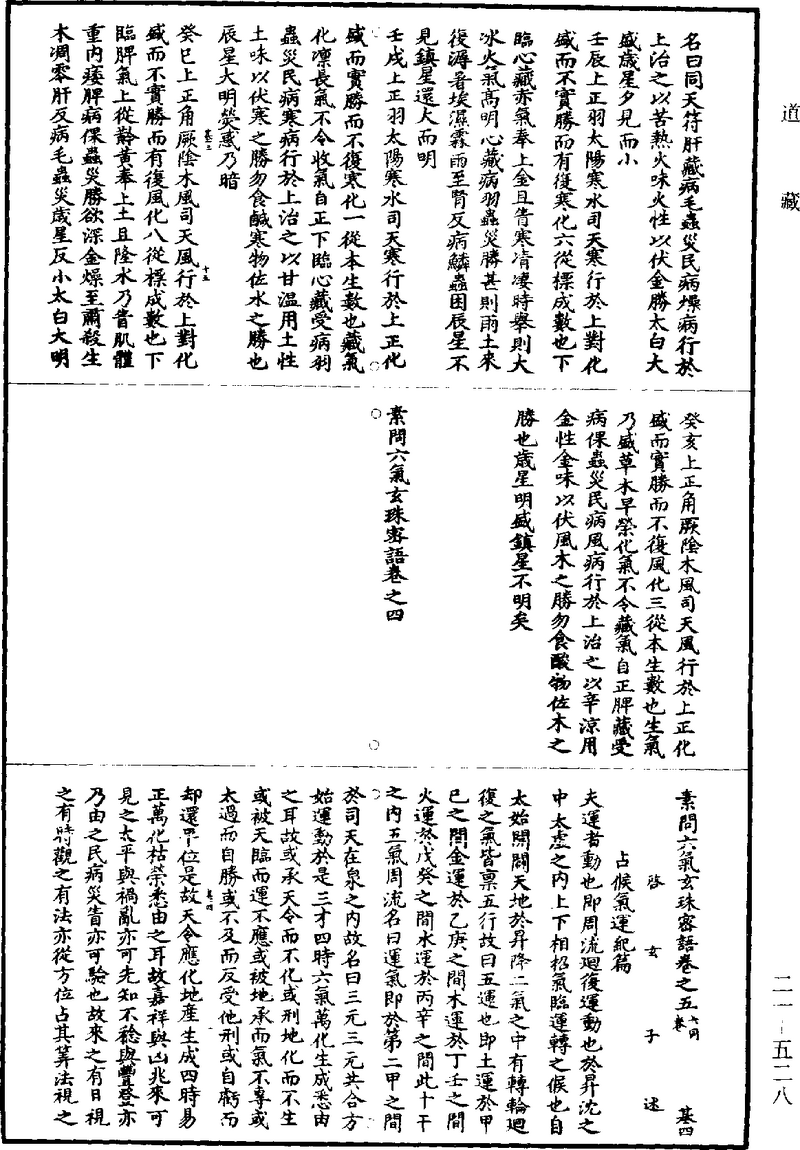 道藏
名曰同天符肝藏病毛蟲災民病燥病行於
上治之以苦熱火味火性以伏金勝太白大
盛歲星夕見而小
壬辰上正羽太陽寒水司天寒行於上對化
盛而不實勝而有復寒化六從標成數也下
臨心藏赤氣奉上金且眚寒凊凄時舉則大
冰火氣高明心藏病羽蟲災勝甚則雨土來
復溽者埃濕霖雨至腎反病鱗蟲困辰星不
見鎮星還大而明
壬戌上正羽太陽寒水司天寒行於上正化
盛而實勝而不復寒化一從本生數也藏氣
化凜長氣不令收氣自正下臨心藏受病羽
蟲災民病寒病行於上治之以甘溫用土性
土味以伏寒之勝勿食鹹寒物佐水之勝也
辰星大明熒惑乃暗
癸巳上正角厥陰木風司天風行於上對化
盛而不實勝而有復風化八從標成數也下
臨脾氣上從齡黃奉上土且隆水乃眚肌體
重內痿脾病倮蟲災勝欲深金燥至肅殺生
木凋零肝反病毛蟲災歲星反小太白大明
癸亥上正角厥陰木風司天風行於上正化
盛而實勝而不復風化三從本生數也生氣
乃盛草木早榮化氣不令藏氣自正脾藏受
病倮蟲災民病風病行於上治之以辛涼用
金性金味以伏風木之勝勿食酸物佐木之
勝也歲星明盛鎮星不明矣
素問六氣玄珠密語卷之四
素問六氣玄珠密語卷之五 基四
啓玄子述
占候氣運紀篇
夫運者動也即周流迴復運動也於昇沈之
中太虛之內上下相招氣臨運轉之候也自
太始開闢天地於昇降二氣之中有轉輪迴
復之氣皆稟五行故曰五運也即土運於甲
己之間金運於乙庚之間木運於丁壬之間
火運於戊癸之間水運於丙辛之間此十干
之內五氣周流名曰運氣即於第二甲之間
於司天在泉之內故名曰三元三元共合方
始運動於是三才四時六氣萬化生成悉由
之耳故或承天令而不化或刑地化而不生
或被天臨而運不應或被地承而氣不專或
太過而自勝或不及而反受他刑或自虧而
却還平位是故天令應化地產生成四時易
正萬化枯榮悉由之耳故嘉祥與凶兆來可
見之太平與禍亂亦可先知不稔與豐登亦
乃由之民病災眚亦可驗也故來之有日視
之有時觀之有法亦從方位占其筭法視之
二一-五二八